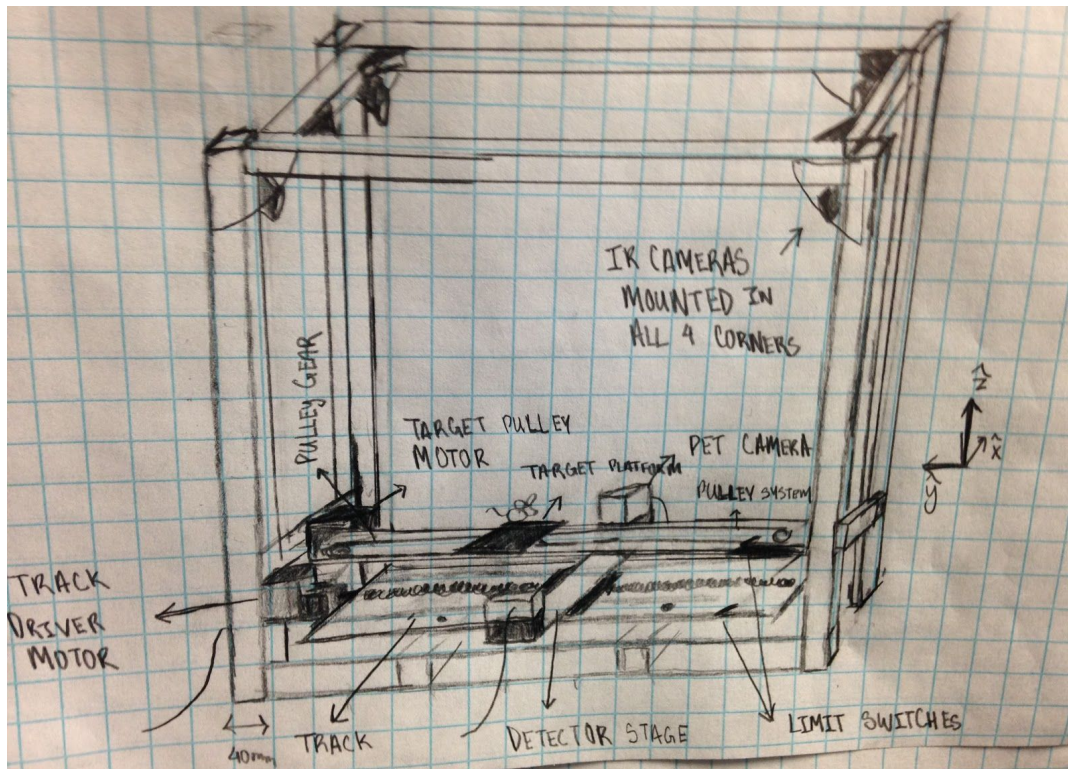 IR CAMERAS
MOUNTED IN
ALL 4 CORNERS
PULLEY GEAR
TARGET PULLEY
MOTOR
TARGET PLATFORM
PET CAMERA
PULLEY SYSTEM
ẑ
x̂
ŷ
TRACK
DRIVER
MOTOR
40mm
TRACK
DETECTOR STAGE
LIMIT SWITCHES